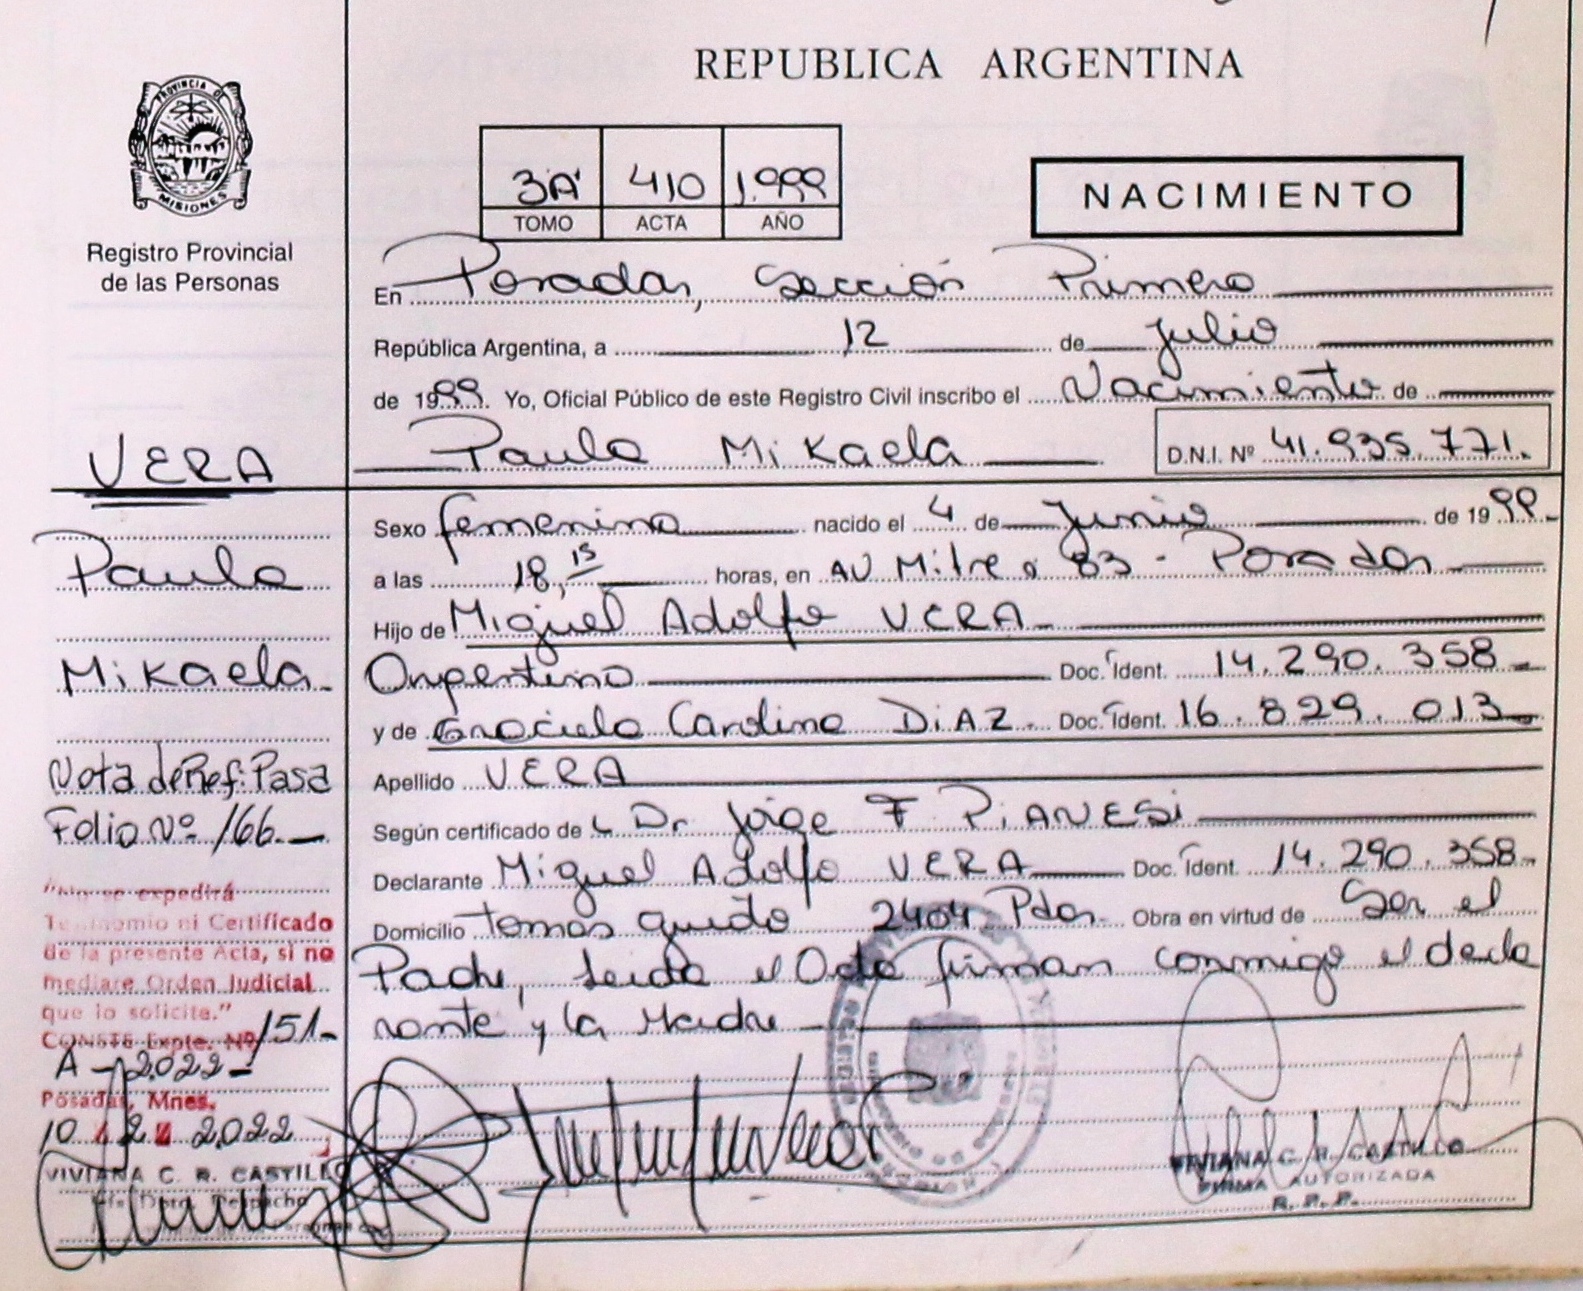 REPUBLICA ARGENTINA
PROVINCIA DE
MISIONES
Registro Provincial
de las Personas
3A 410 1.999
TOMO ACTA AÑO
NACIMIENTO
En Posadas, Sección Primera
República Argentina, a 12 de Julio
de 1999. Yo, Oficial Público de este Registro Civil inscribo el Nacimiento de
Paula Mikaela D.N.I. Nº 41.935.771.
Sexo femenino nacido el 4 de Junio de 1999.
a las 18,15 horas, en AV Mitre 83 - Posadas
Hijo de Miguel Adolfo VERA
Argentino Doc. Ident. 14.290.358
y de Graciela Carolina DIAZ. Doc. Ident. 16.829.013
Apellido VERA
Según certificado de Dr Jorge F PIANESI
Declarante Miguel Adolfo VERA Doc. Ident. 14.290.358
Domicilio Tomas guido 2404 Pdas. Obra en virtud de Ser el
Padre, Leida el Acta firman conmigo el decla
rante y la Madre
VIVIANA C. R. CASTILLO
FIRMA AUTORIZADA
R. P. P.
VERA
Paula
Mikaela
Nota de Ref: Pasa
Folio Nº 166.
"No se expedirá
Testimonio ni Certificado
de la presente Acta, si no
mediare Orden Judicial
que lo solicite."
CONSTE Expte. Nº 151-
A-2022-
Posadas, Mnes.
10 2 2022
VIVIANA C. R. CASTILLO
Dpto. Despacho